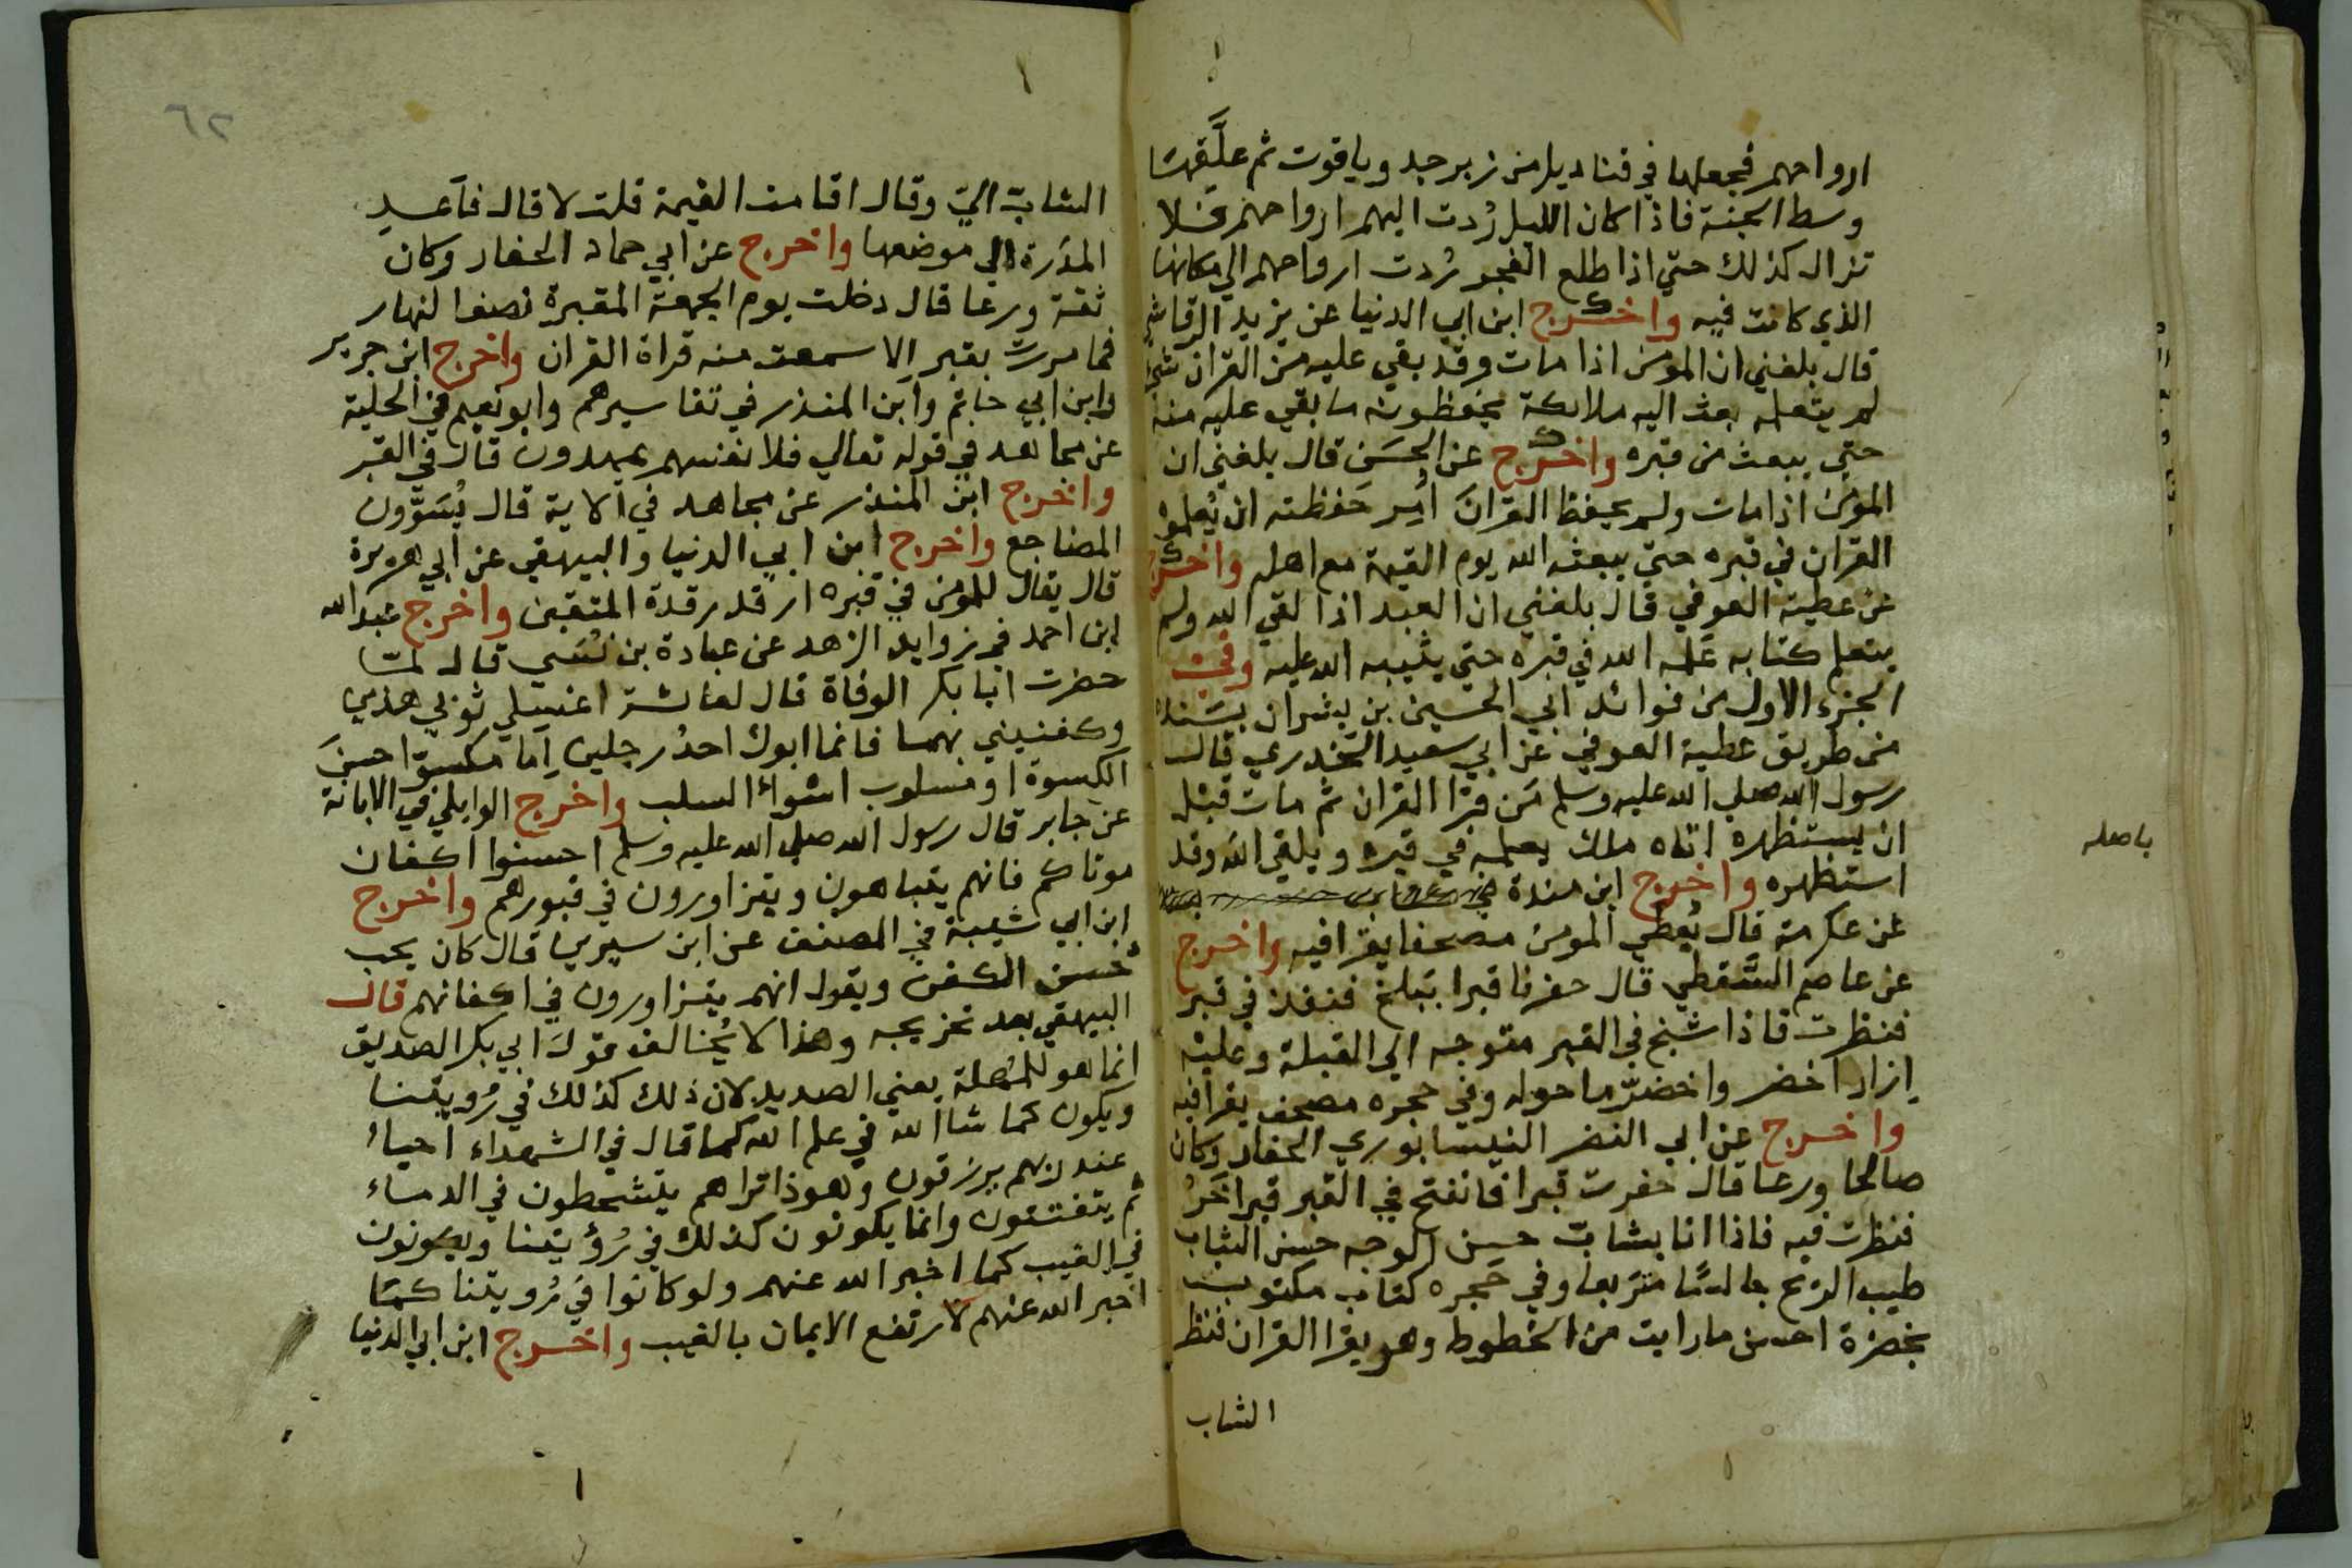 ارواحهم فجعلها في قناديل من زبرجد وياقوت ثم علَّقها
وسط الجنة فاذا كان الليل رُدت اليهم ارواحهم فلا
تزال كذلك حتي اذا طلع الفجر رُدت ارواحهم الي مكانها
الذي كانت فيه واخرج ابن ابي الدنيا عن يزيد الرقاشي
قال بلغني ان المومن اذا مات وقد بقي عليه من القران شي
لم يتعلمه بعث اليه ملائكة يحفظونه ما بقي عليه منه
حتي يبعث من قبره واخرج عن الحسَن قال بلغني ان
المومن اذا مات ولم يحفظ القرانَ اُمِر حَفظته ان يُعلموه
القران في قبره حتي يبعثه الله يوم القيمة مع اهله واخرج
عن عطية العوفي قال بلغني ان العبد اذا لقي الله ولم
يتعلم كتابه عَلمه الله في قبره حتي يثيبه الله عليه وفي
الجزء الاول من فوائد ابي الحسين بن بشران بسَنده
من طريق عطية العوفي عن ابي سعيد الخدري قال
رسول الله صلي الله عليه وسلم مَن قرا القران ثم مات قبل
ان يستظهره اتاه ملك يعلمه في قبره ويلقي الله وقد
استظهره واخرج ابن مندة
باصله
عن عكرمة قال يُعطَي المومن مصحفا يقرا فيه واخرج
عن عاصم السَّقطي قال حفرنا قبرا ببَلخ فنفذ في قبر
فنظرت فاذا شيخ في القبر متوجه الي القبلة وعليه
إزار اخضر واخضرّ ما حوله وفي حجره مصحف يقرا فيه
واخرج عن ابي النضر النيسابوري الحفار وكان
صالحا ورعا قال حفرت قبرا فانفتح في القبر قبر اخَرُ
فنظرت فيه فاذا انا بشابّ حسن الوجه حسن الثياب
طيب الريح جالسًا متربعا وفي حَجره كتاب مكتوب
بخضرة احسن ما رايت من الخطوط وهو يقرا القران فنظر
الشاب
٦٢
الشابّ اليّ وقال اقامت القيمة قلت لا قال فاَعد
المدَرة الي موضعها واخرج عن ابي حماد الحفار وكان
ثقة ورعا قال دخلت يوم الجمعة المقبرة نصف النهار
فما مررت بقبر الا سمعت منه قراة القران واخرج ابن جرير
وابن ابي حاتم وابن المنذر في تفاسيرهم وابو نعيم في الحلية
عن مجاهد في قوله تعالي فلانفسهم يمهدون قال في القبر
واخرج ابن المنذر عن مجاهد في الاية قال يُسَوَّون
المضاجع واخرج ابن ابي الدنيا والبيهقي عن ابي هريرة
قال يقال للمومن في قبره ارقد رقدة المتقين واخرج عبد الله
ابن احمد في زوايد الزهد عن عبادة بن نُسَي قال لما
حضرت ابا بكر الوفاة قال لعائشة اغسلي ثوبي هذين
وكفنيني بهما فانما ابوك احدُ رجلين اِما مكسوّ احسنَ
الكسوة او مسلوب اسوأ السلب واخرج الوايلي في الابانة
عن جابر قال رسول الله صلي الله عليه وسلم احسنوا اكفان
موتاكم فانهم يتباهون ويتزاورون في قبورهم واخرج
ابن ابي شيبة في المصنف عن ابن سيرين قال كان يحب
حُسن الكفن ويقول انهم يتزاورون في اكفانهم قال
البيهقي بعد تخريجه وهذا لا يُخالف قولَ ابي بكر الصديق
انما هو للمُهلة يعني الصديد لان ذلك كذلك في رُويتنا
ويكون كما شا الله في علم الله كما قال في الشهداء احياءٌ
عند ربهم يرزقون وهوذا تراهم يتشحطون في الدماء
ثم يتفتتون وانما يكونون كذلك في رُؤيتنا ويكونون
في الغيب كما اخبر الله عنهم ولو كانوا في رُويتنا كما
اخبر الله عنهم لارتفع الايمان بالغيب واخرج ابن ابي الدنيا